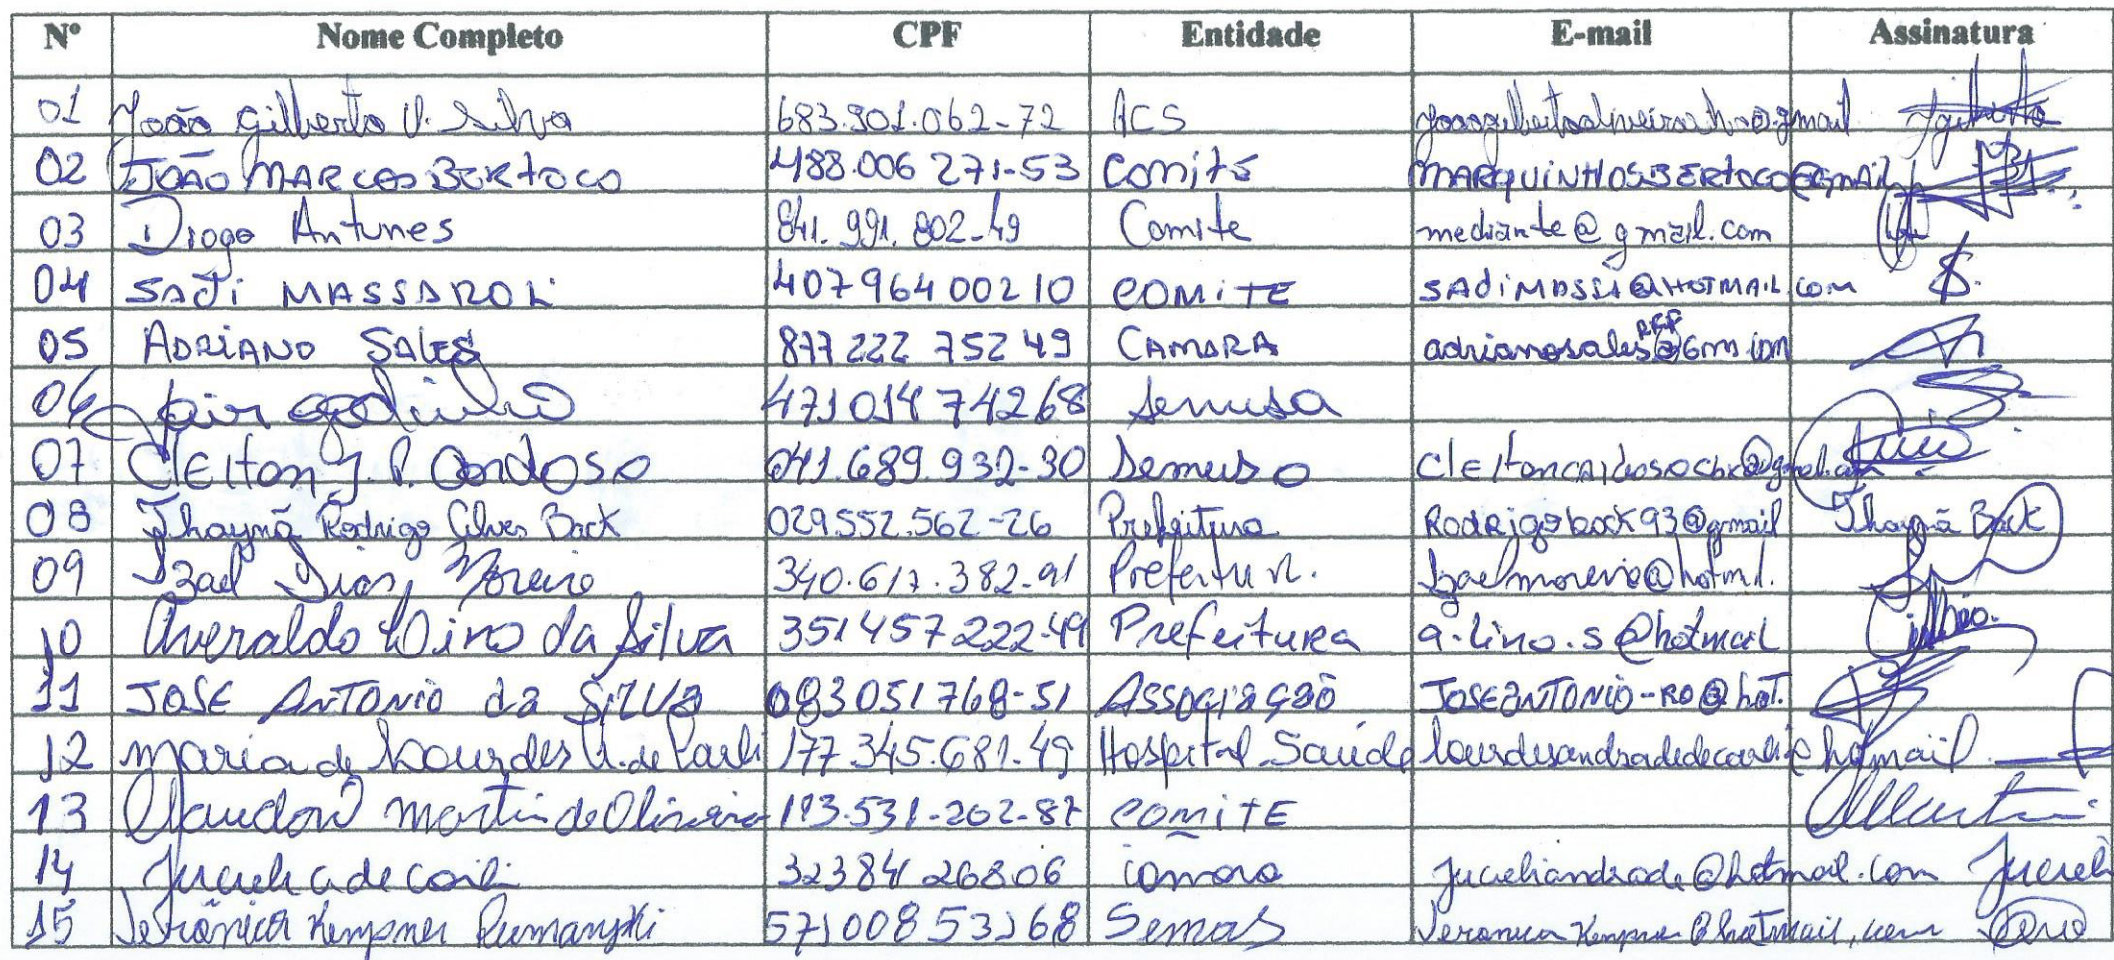 Nº Nome Completo CPF Entidade E-mail Assinatura
01 João Gilberto O. Silva 683.901.062-72 ACS
02 JOÃO MARCOS BERTOCO 488.006 271-53 Comitê MARQUINHOSBERTOCO@GMAIL
03 Diogo Antunes 841.991.802-49 Comite mediante@gmail.com
04 SADI MASSAROLI 407964 00210 COMITE SADIMASSA@HOTMAIL.COM
05 ADRIANO SALES 877 222 752 49 CAMARA
06 Jair godinho 471014 74268 Semusa
07 CLEITON J. P. Cardoso 041.689.932-30 Semusa
08 Thaynã Rodrigo Alves Back 029.552.562-26 Prefeitura Rodrigoback93@gmail Thaynã Back
09 Izael Dias Moreira 340.617.382-91 Prefeitura. Izaelmoreira@hotml.
10 Averaldo Lino da Silva 351457222-49 Prefeitura a.lino.s@hotmail
11 JOSE ANTONIO da SILVA 083051768-51 ASSOCIAÇÃO JOSEANTONIO-RO@hot.
12 maria de Lourdes A. de Carli 177.345.681.49 Hospital Saúde lourdesandradedecarli@hotmail
13 martin de Oliveira 113.531-202-87 COMITE
14 Juceli A de carli 32384126806 camara juceliandrade@hotmail.com Juceli
15 Verônica Kempner 57100853268 Semas